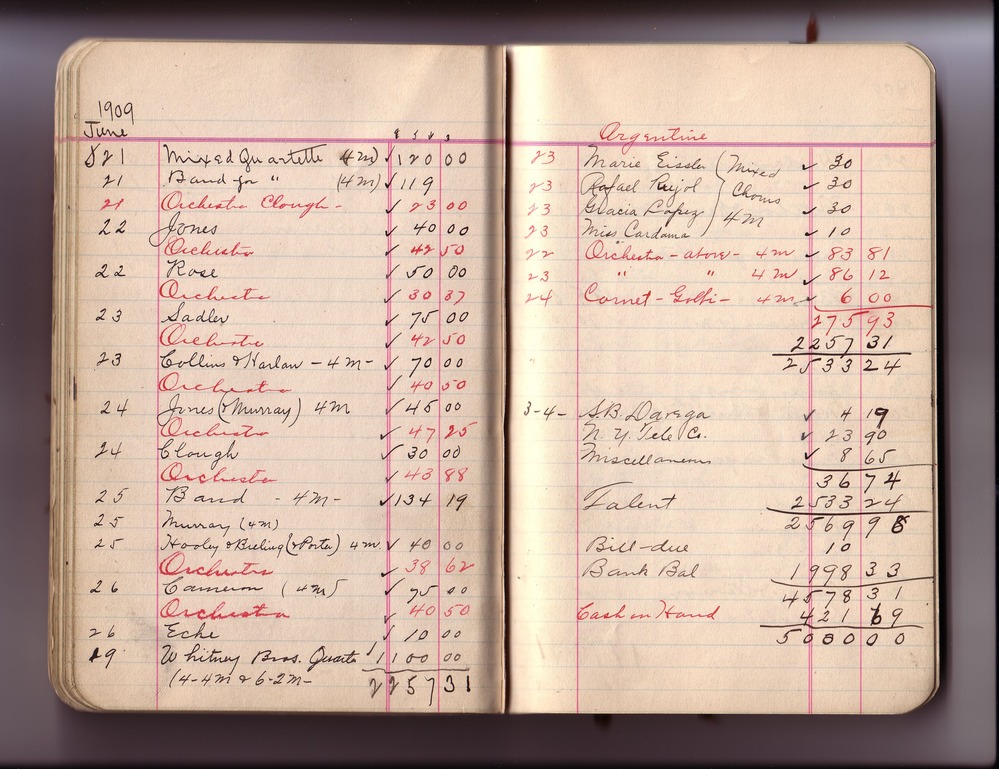 1909
June
21 Mixed Quartette (4M) ✓ 120 00
21 Band for " (4M) ✓ 119
21 Orchestra Clough - ✓ 23 00
22 Jones ✓ 40 00
Orchestra ✓ 42 50
22 Rose ✓ 50 00
Orchestra ✓ 30 37
23 Sadler ✓ 75 00
Orchestra ✓ 42 50
23 Collins & Harlan - 4M - ✓ 70 00
Orchestra ✓ 40 50
24 Jones (& Murray) 4M ✓ 45 00
Orchestra ✓ 47 25
24 Clough ✓ 30 00
Orchestra ✓ 43 88
25 Band - 4M - ✓ 134 19
25 Murray (4M)
25 Hooley & Bieling (& Porter) 4M ✓ 40 00
Orchestra ✓ 38 62
26 Cameron (4M) ✓ 75 00
Orchestra ✓ 40 50
26 Ecke ✓ 10 00
19 Whitney Bros. Quarte ✓ 1100 00
(4-4M & 6-2M-
2257 31
Argentine
23 Marie Eissler ✓ 30
Mixed
23 Rafael Pujol ✓ 30
Chorus
23 Gracia Lopez ✓ 30
4M
23 Miss Cardama ✓ 10
22 Orchestra - above - 4M ✓ 83 81
23 " " 4M ✓ 86 12
24 Cornet - - 4M ✓ 6 00
275 93
2257 31
2533 24
3-4- S.B. Davega ✓ 4 19
N.Y. Tele Co. ✓ 23 90
Miscellaneous ✓ 8 65
36 74
Talent 2533 24
2569 98
Bill-due 10
Bank Bal 1998 33
4578 31
Cash on Hand 421 69
5000 00